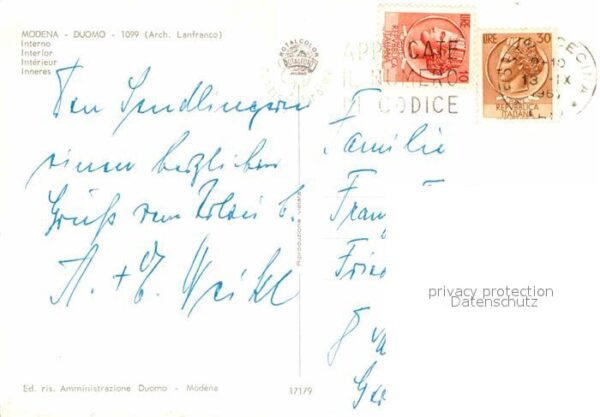 MODENA - DUOMO - 1099 (Arch. Lanfranco)
Interno
Interior
Intérieur
Inneres
ROTALCOLOR
ROTALFOTO
MILANO
APPLICATE
IL NUMERO
DI CODICE
LIRE 10
REPUBBLICA ITALIANA
LIRE 30
REPUBBLICA
ITALIANA
CECINA
13 IX
196
Den Sendlingern
einen herzlichen
Gruß vom
A. + E. Weikl
Familie
Fran
Frie
Ger
Riproduzione vietata
privacy protection
Datenschutz
Ed. ris. Amministrazione Duomo - Modena
17179